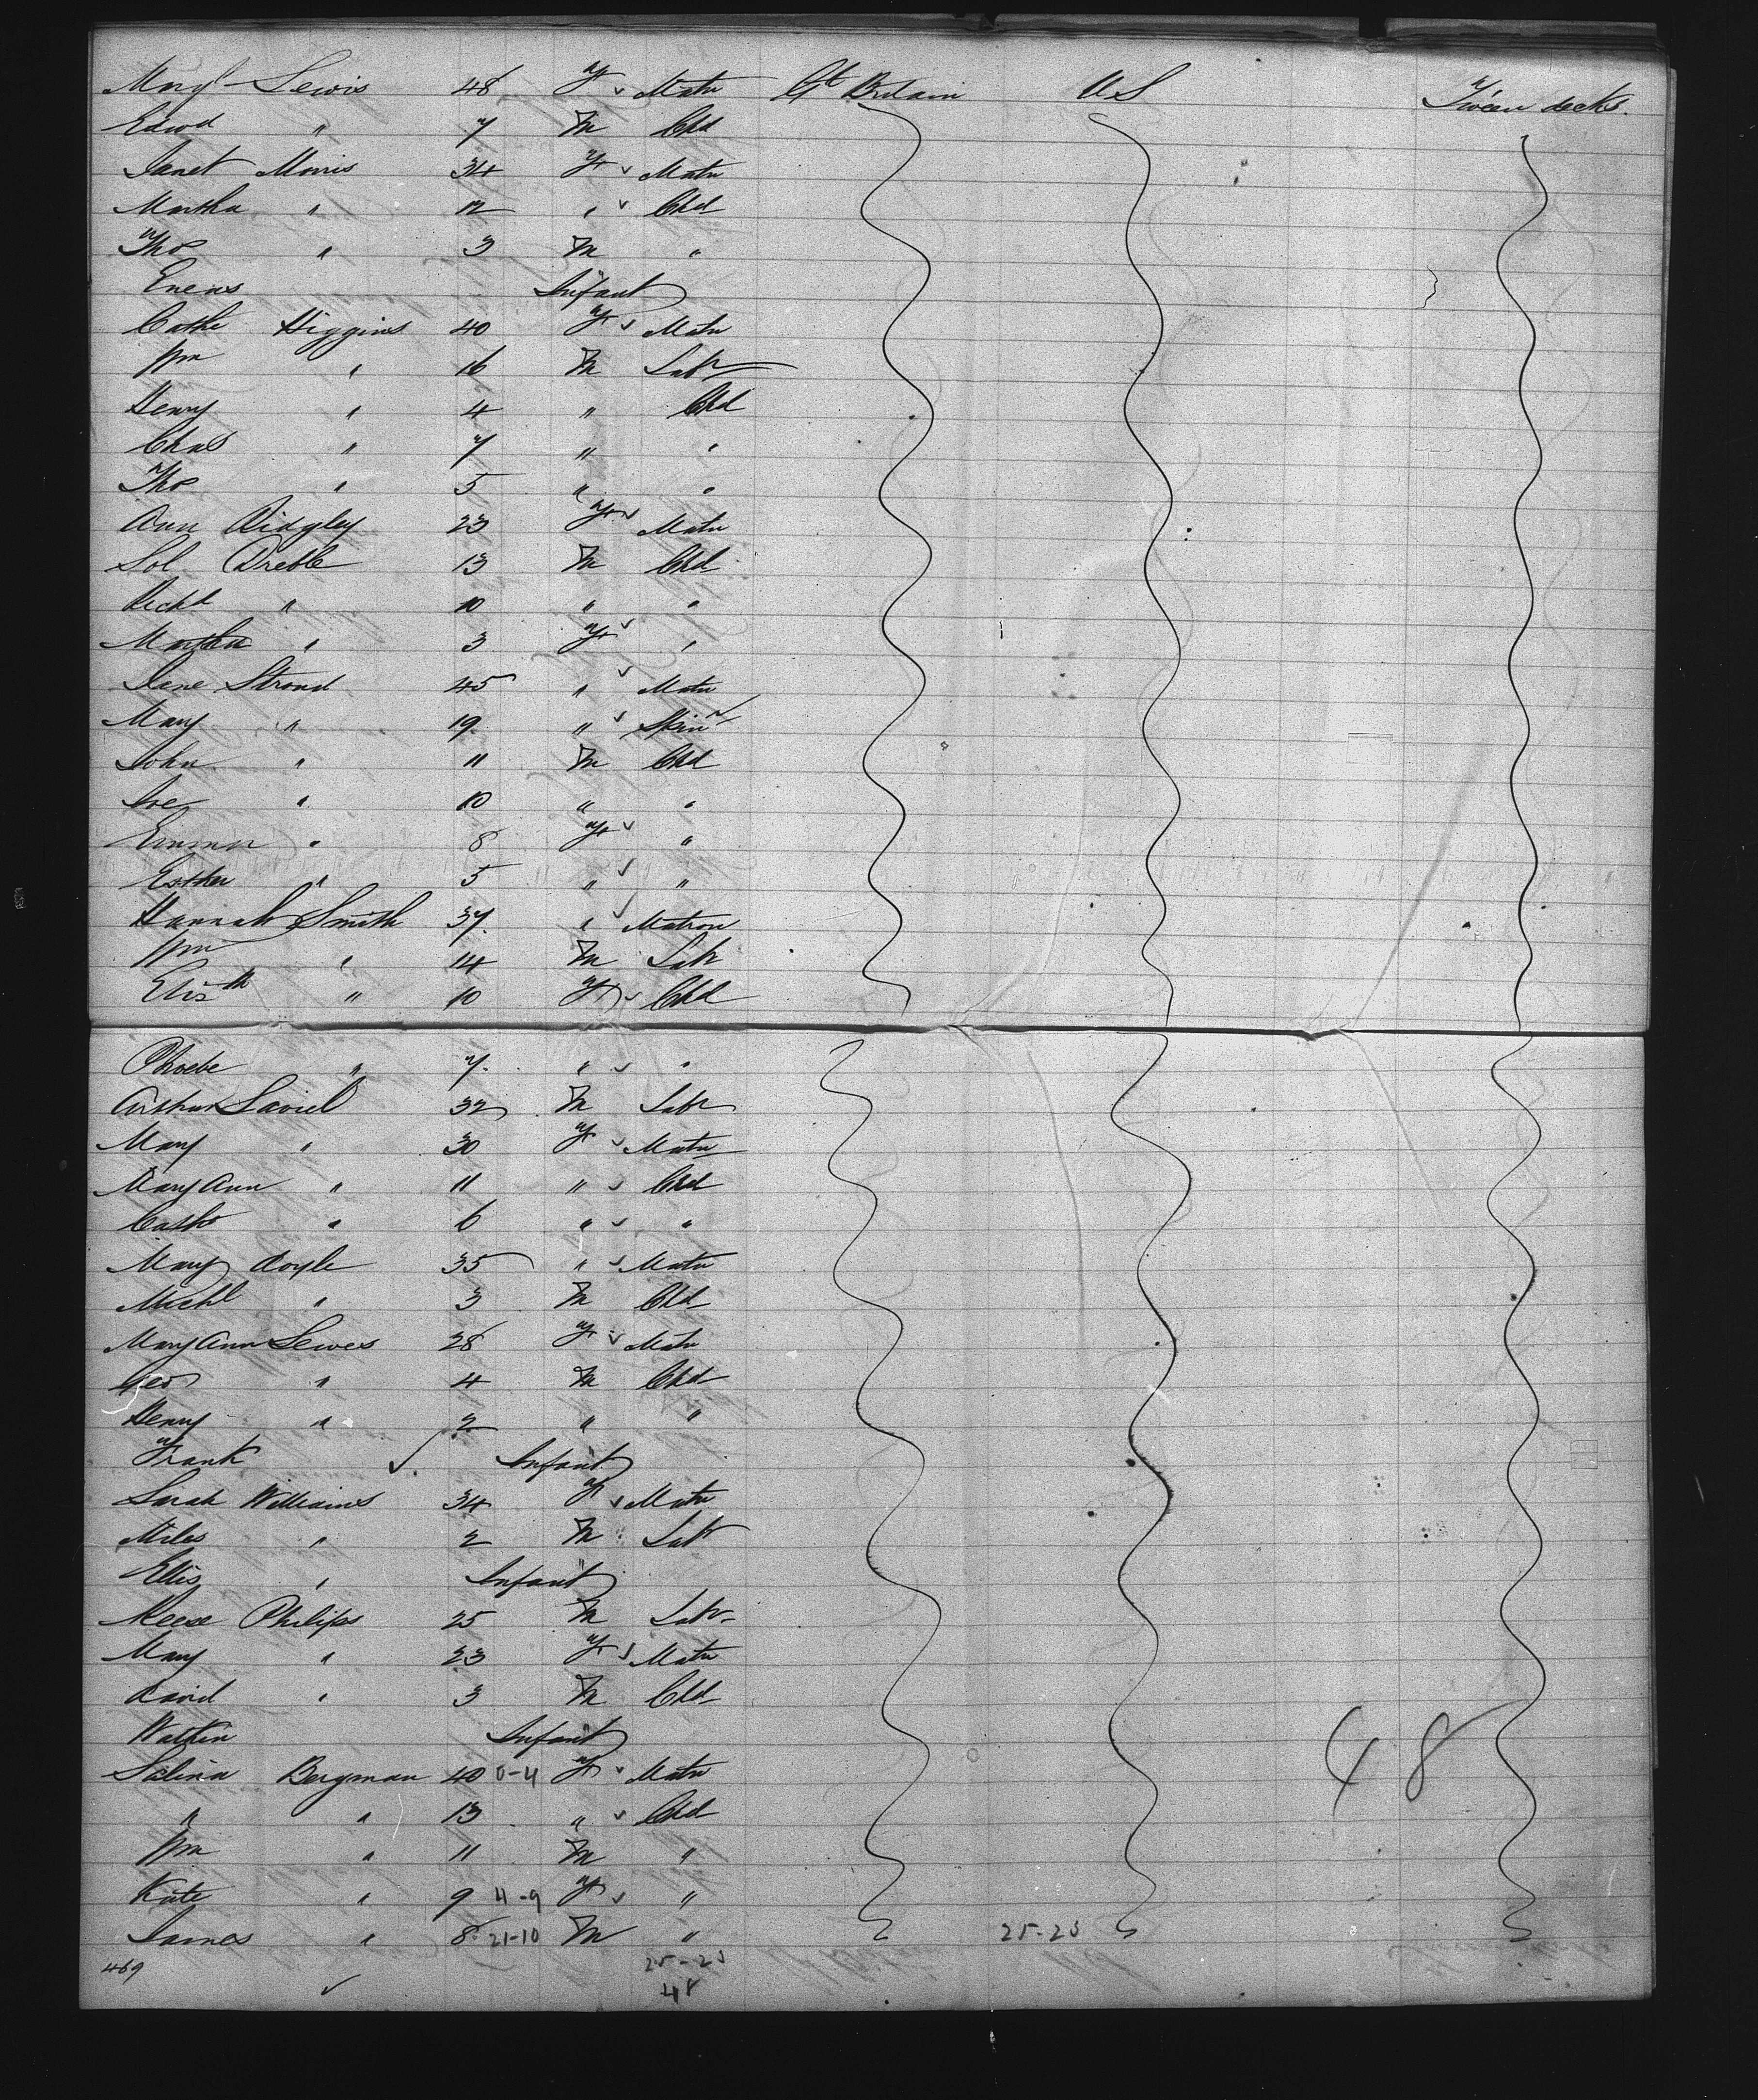 Mary Lewis 48 F ✓ Matn Gt Britain US 'Tween decks.
Edwd " 7 M Chd
Janet Morris 34 F ✓ Matn
Martha " 12 " ✓ Chd
Thos " 3 M "
Infant
Cathe Higgins 40 F ✓ Matn
Wm " 16 M Labr
Henry " 4 " Chd
Chas " 7 " "
Thos " 5 " "
Ann Ridgley 23 F ✓ Matn
Sol 13 M Chd
Richd " 10 " "
Martha " 3 F ✓ "
Jane Stroud 45 " ✓ Matn
Mary " 19 " ✓ Spinr
John " 11 M Chd
Joe " 10 " "
Emma " 8 F ✓ "
Esther " 5 " ✓ "
Hannah Smith 37. " ✓ Matron
Wm " 14 M Labr
Elizth " 10 F ✓ Chd
Phoebe " 7. " ✓ "
Arthur 32 M Labr
Mary " 30 F ✓ Matn
Mary Ann " 11 " ✓ Chd
Cathe " 6 " ✓ "
Mary Doyle 35 " ✓ Matn
Michl " 3 M Chd
Mary Ann Lewes 28 F ✓ Matn
Geo " 4 M Chd
Henry " 2 " "
Frank ✓ Infant
Sarah Williams 34 F ✓ Matn
Miles " 2 M Labr
Ellis " Infant
Reese Philips 25 M Labr
Mary " 23 F ✓ Matn
David " 3 M Chd
Watkin Infant
Salina Bergman 40 0-4 F ✓ Matn 48
" " 13 " ✓ Chd
Wm " 11 M "
Kate " 9 4-9 F ✓ "
James " 8 21-10 M " 25-23
469 ✓ 25-23
48